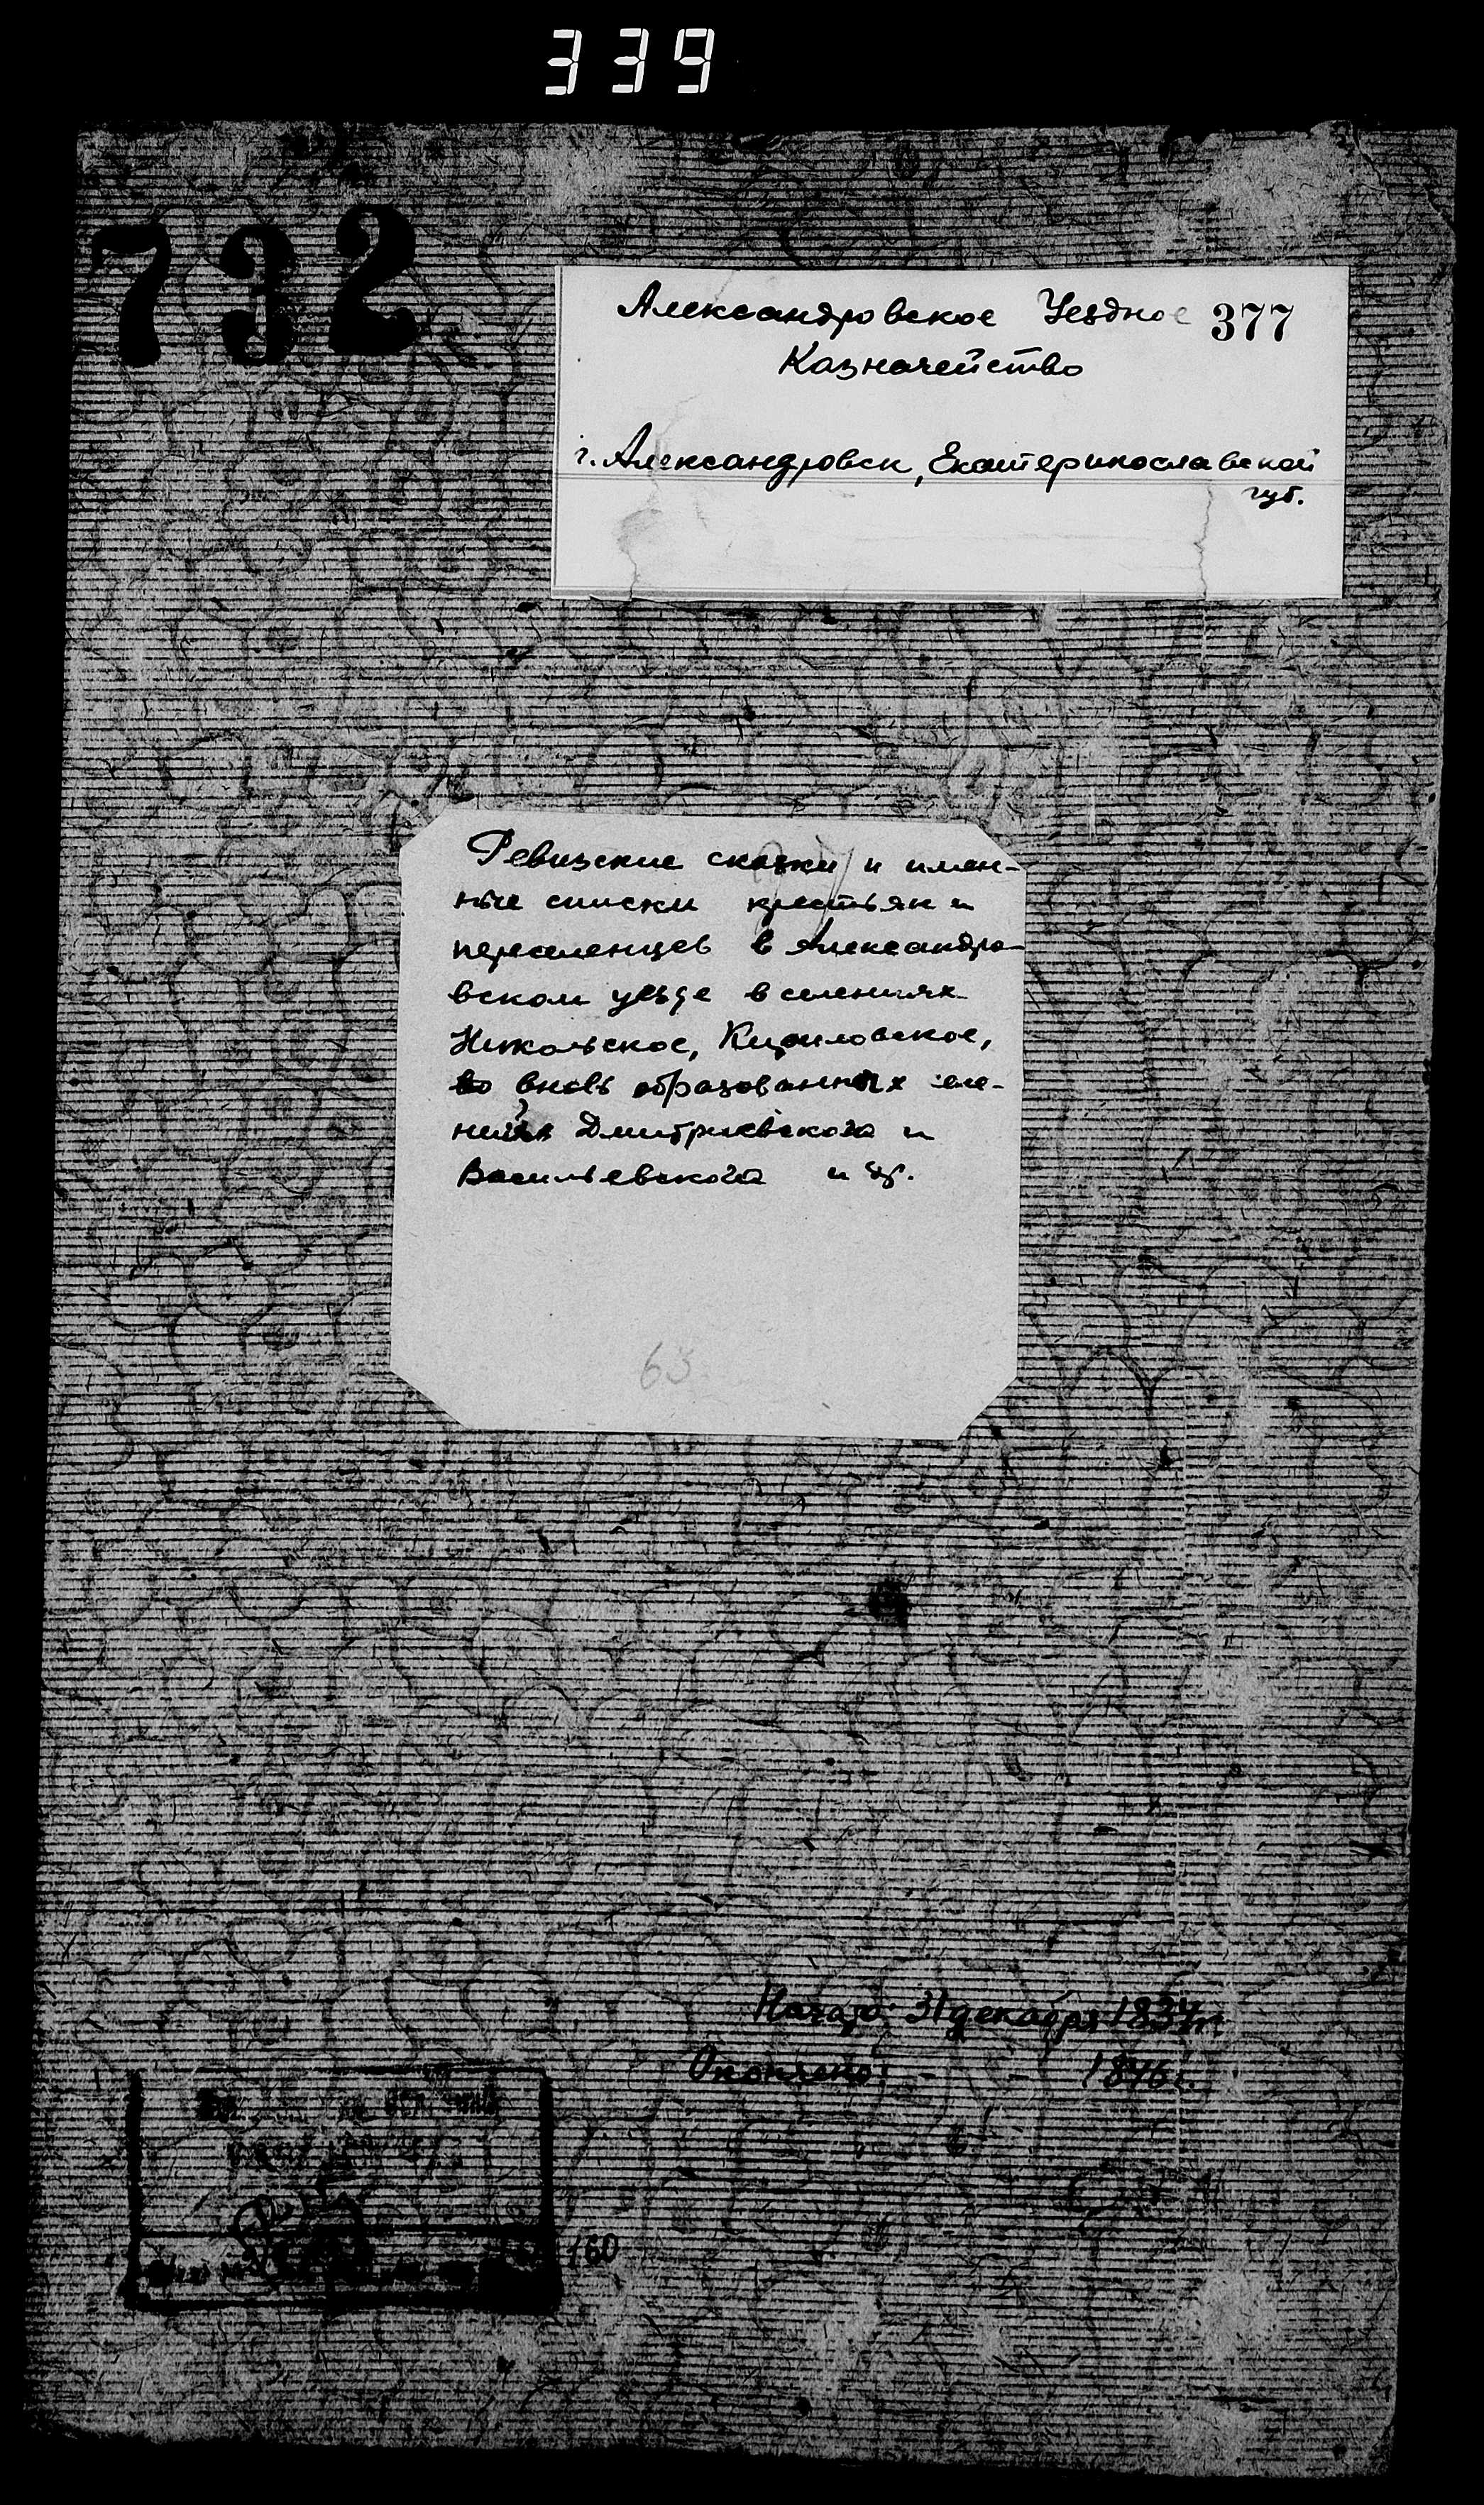 339
732
Александровское Уездное 377
Казначейство
г. Александровск, Екатеринославской
губ.
Ревизские сказки и имен-
ные списки крестьян и
переселенцев в Александро-
вском уезде в селениях
Никольское, Кириловское,
во вновь образованных селе-
ниях Дмитриевского и
Васильевского и др.
63
Начало: 31 декабря 1834 г.
Окончено: - - 1846 г.
160